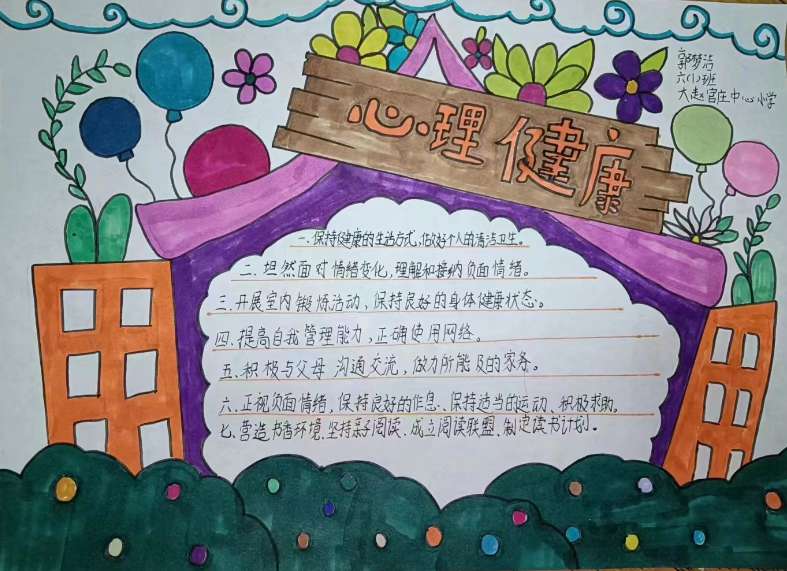 心理健康
郭梦洁
六(1)班
大赵官庄中心小学
一、保持健康的生活方式,做好个人的清洁卫生。
二、坦然面对情绪变化,理解和接纳负面情绪。
三、开展室内锻炼活动,保持良好的身体健康状态。
四、提高自我管理能力,正确使用网络。
五、积极与父母沟通交流,做力所能及的家务。
六、正视负面情绪,保持良好的作息、保持适当的运动、积极求助。
七、营造书香环境、坚持亲子阅读、成立阅读联盟、制定读书计划。